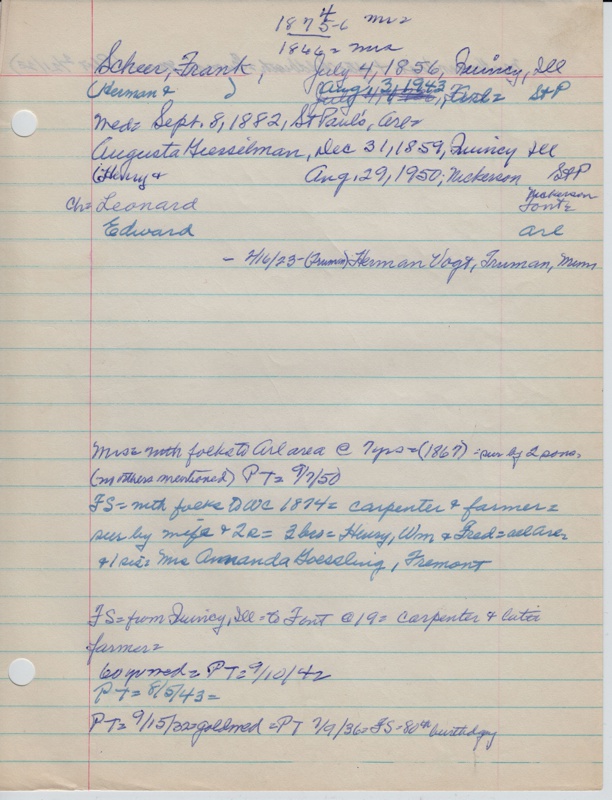 1874
5-6 Mr=
1866= Mrs
Scheer, Frank, July 4, 1856, Quincy, Ill
(Herman & ) Aug 3, 1943, Arl= St P
Med= Sept. 8, 1882, St Paul's, Arl=
Augusta Giesselman, Dec 31, 1859, Quincy Ill
(Henry & Aug. 29, 1950; Nickerson St P
Ch= Leonard Nickerson Font=
Edward Arl
- 2/16/23 - (Truman) Herman Vogt, Truman, Minn
Mrs= with folks to Arl area @ 7yrs = (1867) = sur by 2 sons,
(no others mentioned) PT= 9/7/50
FS= with folks to WC 1874= carpenter & farmer=
sur by wife & 2s= 3 bros= Henry, Wm & Fred= all Arl=
& 1 sis= Mrs Amanda Goessling, Fremont
FS= from Quincy, Ill= to Font @ 19= carpenter & later
farmer=
60 yr wed= PT= 9/10/42
PT= 8/5/43=
PT= 9/15/32= gold wed = PT 7/9/36= FS= 80th birthday